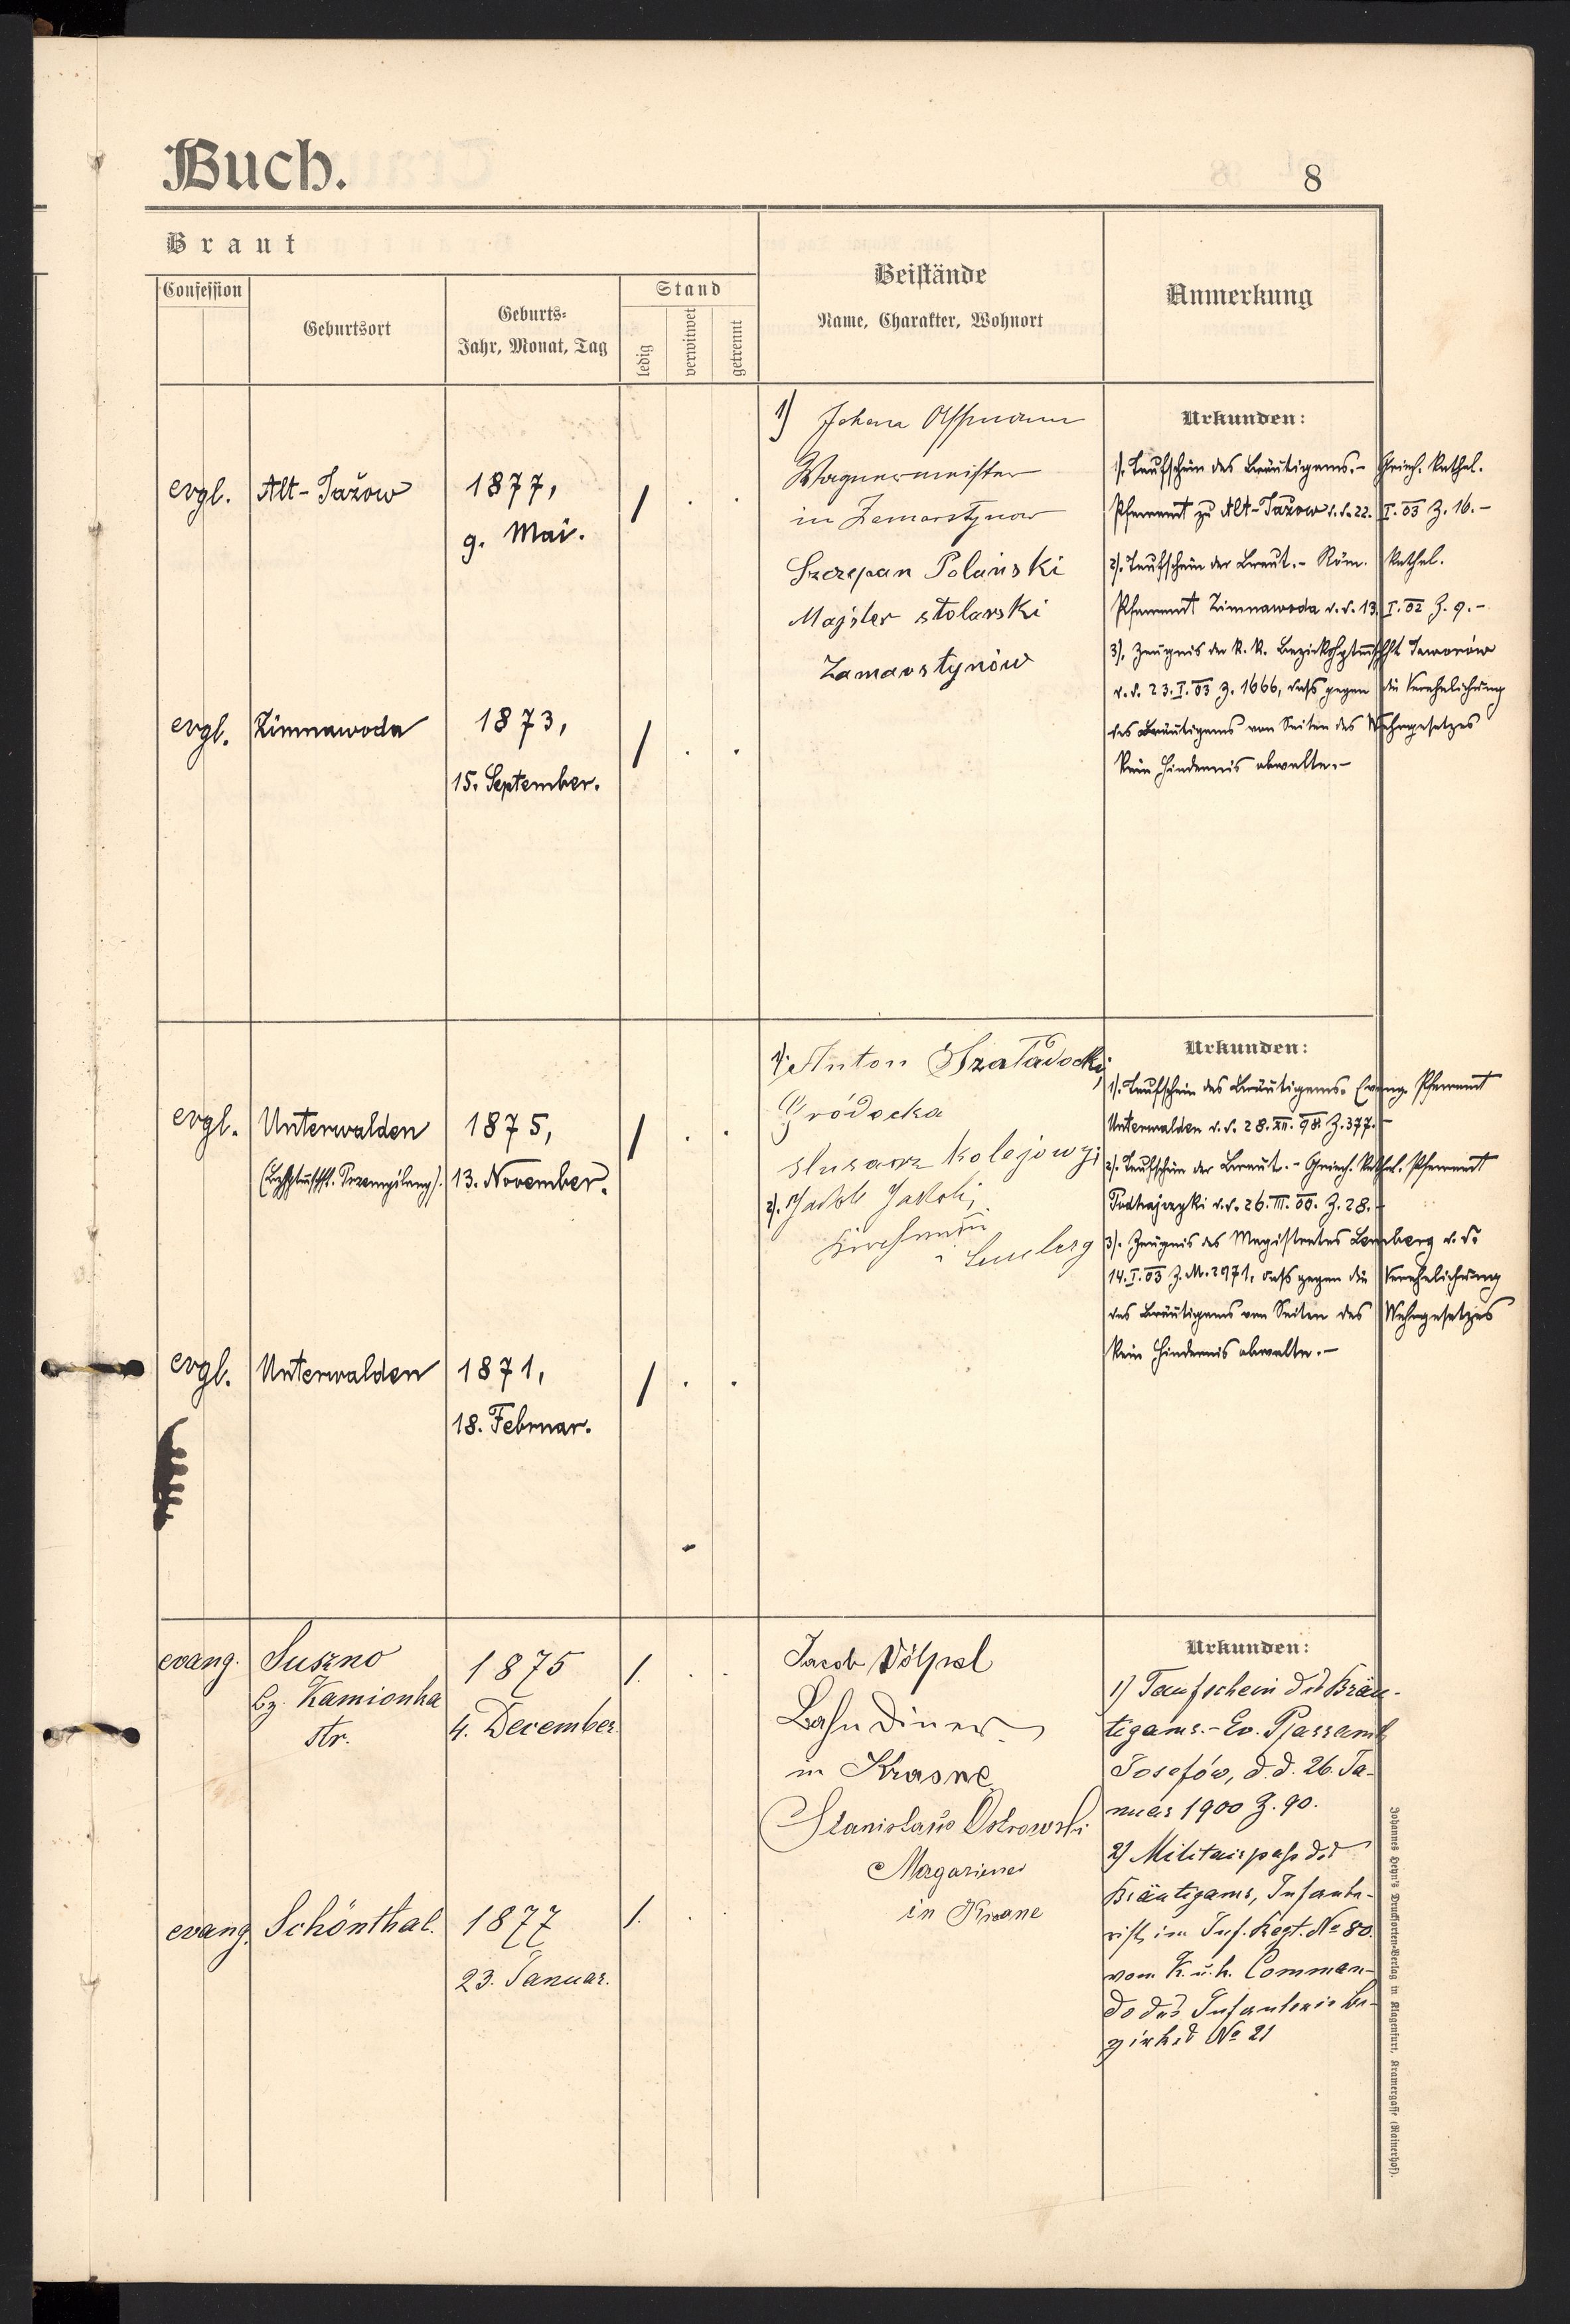 Buch.
8
Braut
Confession
Geburtsort
Geburts-
Jahr, Monat, Tag
Stand
ledig
verwitwet
getrennt
Beistände
Name, Charakter, Wohnort
Anmerkung
evgl.
Alt-Jażow
1877,
9. Mai.
/ . .
1) Johann
Wagnermeister
in Zamarstynow
Szczepan Polański
Majster stolarski
Zamarstynów
Urkunden:
1). Taufschein des Bräutigams.- Griech. kathol.
Pfarramt zu Alt-Jażow v. d. 22. I. 03 Z. 16.-
2). Taufschein der Braut.- Röm. kathol.
Pfarramt Zimnawoda v. d. 13. I. 02 Z. 9.-
3). Zeugnis der k. k. Bezirkshptmschft Jaworów
v. d. 23. I. 03 Z. 1666, dass gegen die Verehelichung
des Bräutigams von Seiten des Wehrgesetzes
kein Hindernis obwalte.-
evgl.
Zimnawoda
1873,
15. September.
/ . .
evgl.
Unterwalden
(Bzhptmschft. Przemyślany).
1875,
13. November.
/ . .
1). Anton
Gródocka
slusarz kolejowy
2). Jakob Jakobi,
i Lemberg
Urkunden:
1). Taufschein des Bräutigams. Evang. Pfarramt
Unterwalden v. d. 28. XII. 98. Z. 377.-
2). Taufschein der Braut.- Griech. kathol. Pfarramt
Podhajczyki v. d. 26. III. 00. Z. 28.-
3). Zeugnis des Magistrates Lemberg v. d.
14. I. 03 Z. M. 2971, dass gegen die Verehelichung
des Bräutigams von Seiten des Wehrgesetzes
kein Hindernis obwalte.-
evgl.
Unterwalden
1871,
18. Februar.
/ . .
evang.
Suszno
bz. Kamionka
str.
1875
4. December.
/. . .
Jacob Völpel
Bahndiner
in Krasne
Stanislaus Ostrowski
Magaziner
in Krasne
Urkunden:
1) Taufschein des Bräu-
tigams.- Ev. Pfarramt
Josefów, d. d. 26. Ja-
nuar 1900 Z. 90.
2) Militairpass des
Bräutigams, Infante-
rist im Inf. Regt. No 80.
vom K. u. k. Comman-
do des Infanterie Be-
zirkes No 21
evang.
Schönthal.
1877
23. Januar.
/. . .
Johannes Heyn's Drucksorten-Verlag in Klagenfurt, Kramergasse (Rainerhof).